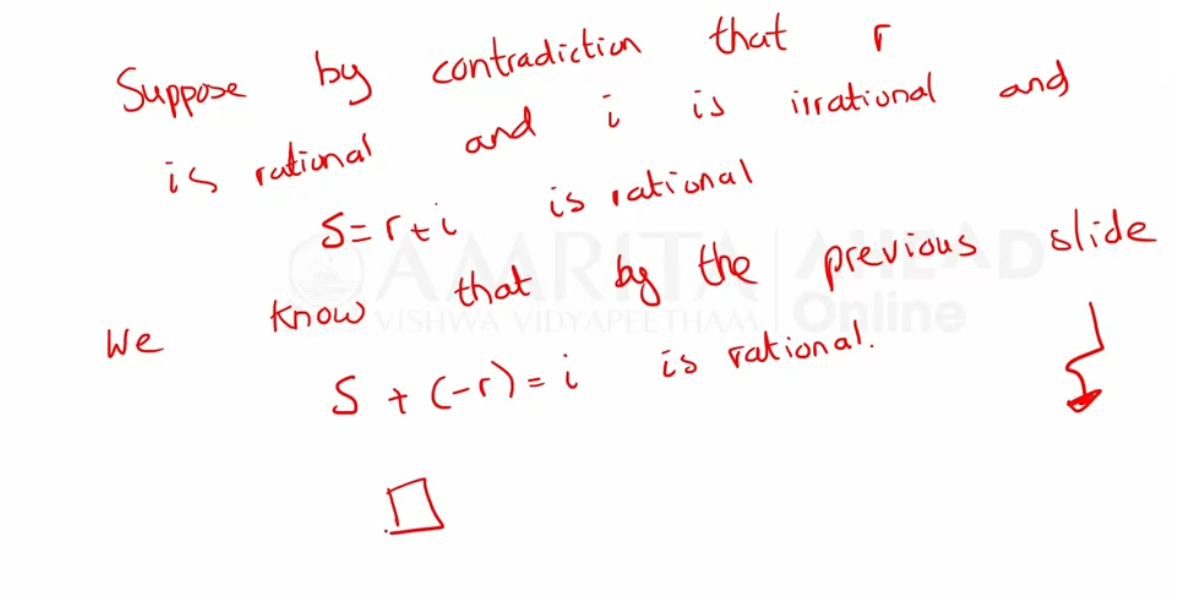 Suppose by contradiction that r
is rational and i is irrational and
S = r + i is rational
We know that by the previous slide
S + (-r) = i is rational.
AMRITA VISHWA VIDYAPEETHAM AHEAD Online